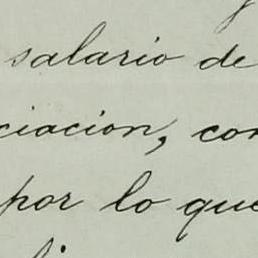 salario de
ciacion, con
por lo que